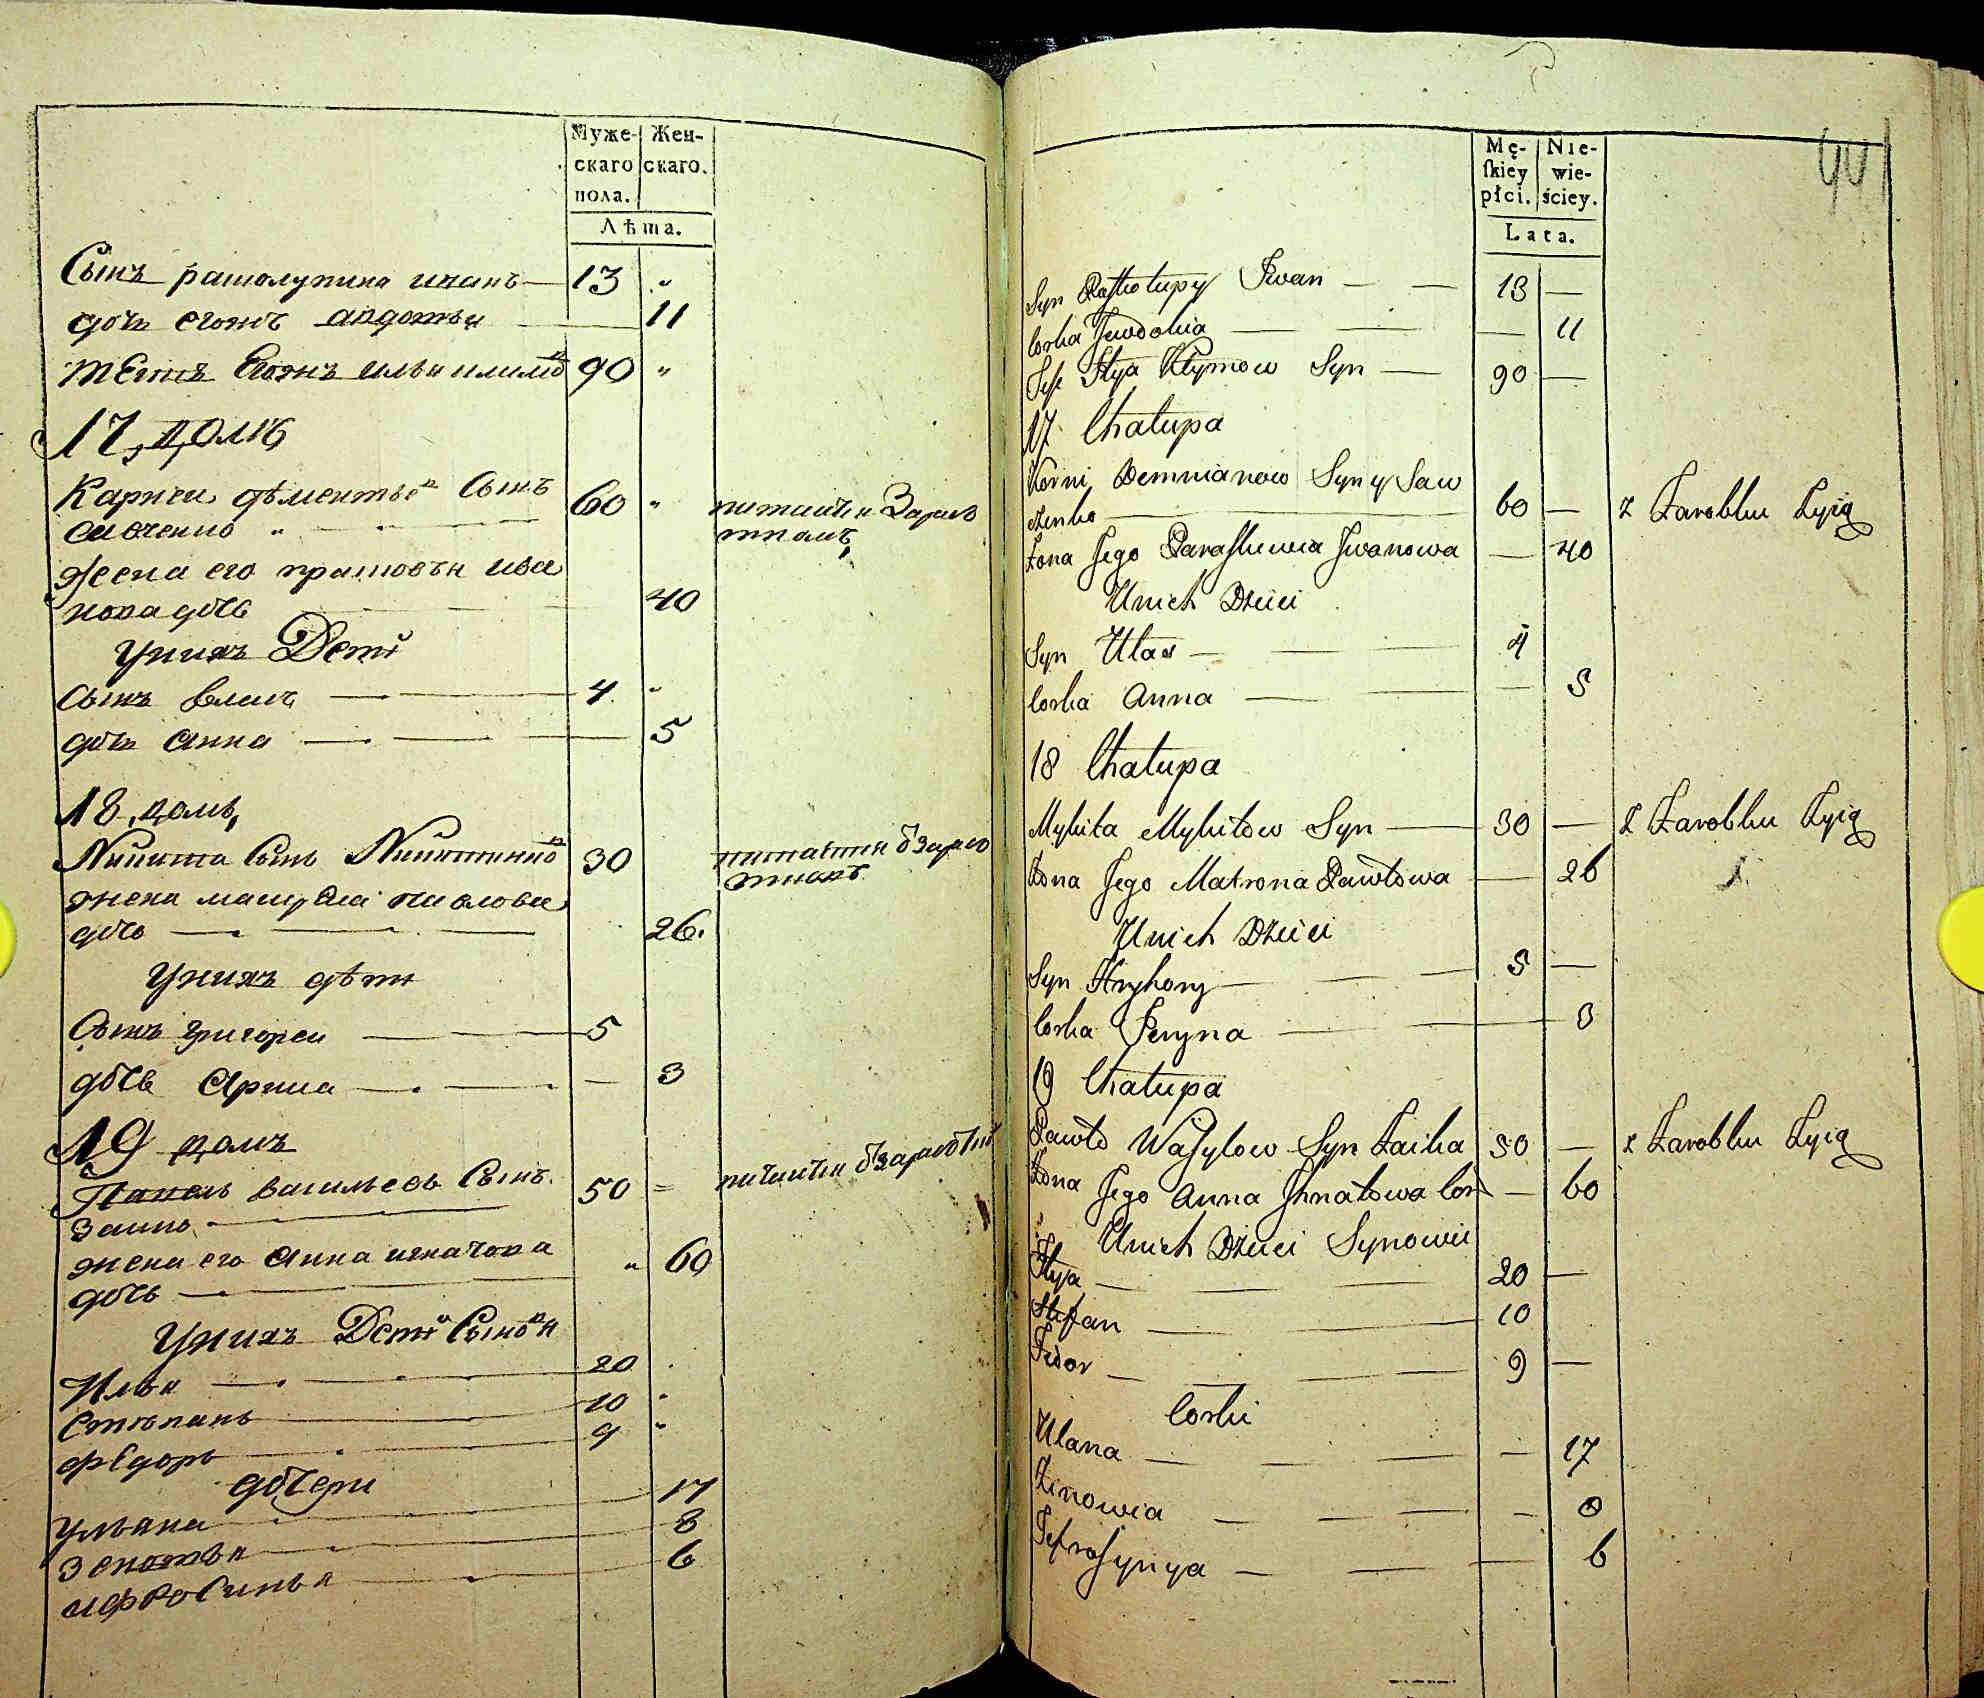 Муже- Жен-
скаго скаго.
пола.
Лѣта.
Сынъ рашолупина иванъ 13 "
дочь егожъ авдотья 11
тесть Егожъ илья климо 90 "
17, домъ
Карнеи деменьтье Сынъ 60 " питаитъ Зараб
савченко " откомъ,
жена его прасковья ива
нова дочь 40
Унихъ Дети
сынъ власъ 4 "
дочь анна 5
18, домъ,
Никита Сынъ Никитинко 30
жена матрона павлова
дочь 26.
Унихъ дѣти
Сынъ григореи 5
дочь арина 3
19 домъ
Павелъ васильевъ Сынъ 50
заика
жена его анна игнатова " 60
дочь
Унихъ Дети Сыновя
Илья 20
степанъ 10 "
федоръ 9 "
дочери
ульяна 17
зеновья 8
ифросинья 6
Mę- Nie-
ſkiey wie-
płci. ściey.
Lata.
401
Syn Rasztołupy Iwan 13
Corka Jewdokia 11
Teſt Ilya Kłymow Syn 90
17 Chałupa
Korni Demnianow Syn y Saw
czenko 60 z Zarobku Zyią
Zona Jego Paraſkiewia Iwanowa 40
Unich Dzieci
Syn Ułas 4
Corka Anna 5
18 Chałupa
Mykita Mykitow Syn 30 Z Zarobku Zyią
Zona Jego Matrona Pawłowa 26
Unich Dzieci
Syn Hryhory 5
Corka Jeryna 3
19 Chałupa
Pawło Waſylow Syn Zaika 50 z Zarobku Zyią
Zona Jego Anna Ihnatowa Cor 60
Unich Dzieci Synowie
Ilya 20
Stefan 10
Fedor 9
Corki
Ulana 17
Zenowia 8
Jefroſynya 6